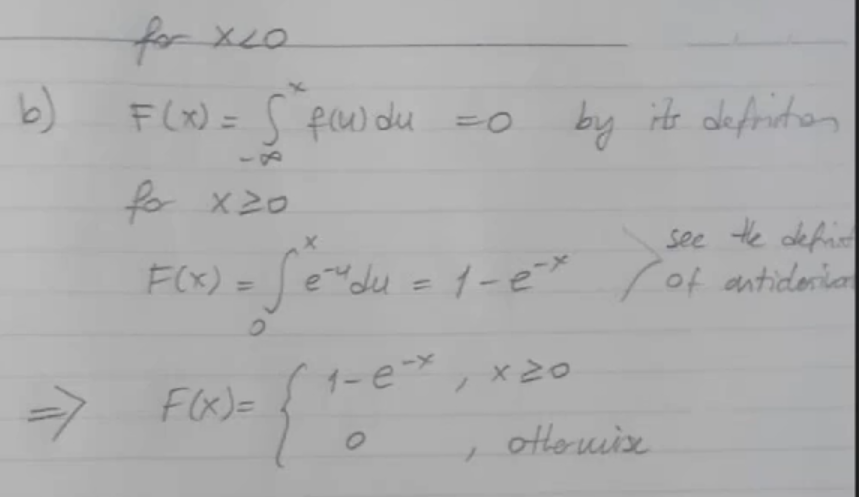 for x<0
b) F(x) = ∫_{-∞}^{x} f(u) du = 0 by its definition
for x ≥ 0
F(x) = ∫_{0}^{x} e^{-u} du = 1 - e^{-x} see the definit
of antideriva
⇒ F(x) = { 1 - e^{-x} , x ≥ 0
0 , otherwise